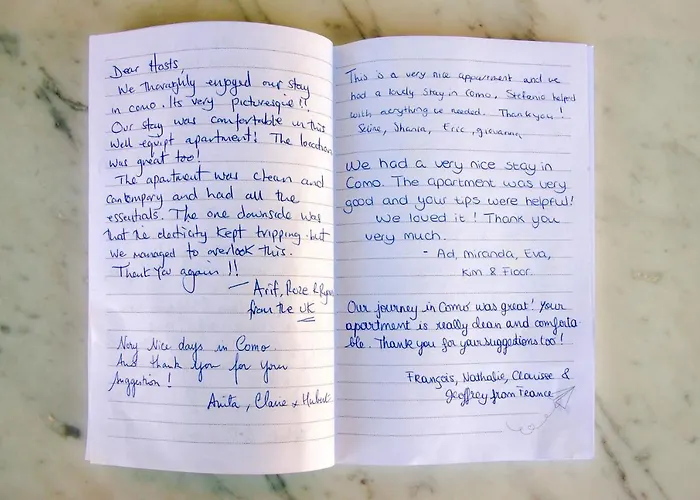 Dear Hosts,
We thoroughly enjoyed our stay
in como. Its very picturesque!!
Our stay was comfortable in this
well equipt apartment! The location
was great too!
The apartment was clean and
contempory and had all the
essentials. The one downside was
that the electicity kept tripping but
we managed to overlook this.
Thank You again !!
— Arif, Roze &
from the UK
Very Nice days in Como.
And thank you for your
suggestion !
Anita, Claire + Hubert
This is a very nice appartment and we
had a lovely stay in Como. Stefania helped
with everything we needed. Thankyou!
Shania, Eric, giovanni
We had a very nice stay in
Como. The apartment was very
good and your tips were helpful!
We loved it! Thank you
very much.
- Ad, miranda, Eva,
Kim & Floor.
Our journey in Como was great! Your
apartment is really clean and comforta
ble. Thank you for your suggestions too!
François, Nathalie, Clarisse &
Jeoffrey from France